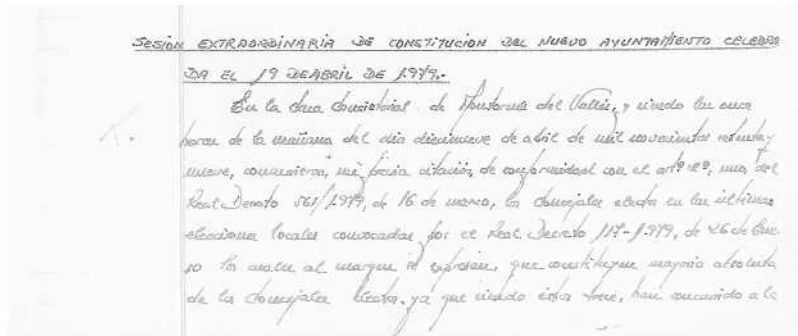 SESION EXTRAORDINARIA DE CONSTITUCION DEL NUEVO AYUNTAMIENTO CELEBRA
DA EL 19 DE ABRIL DE 1.979.-
En la Casa Consistorial de Montornés del Vallés, y siendo las once
horas de la mañana del dia diecinueve de abril de mil novecientos setenta y
nueve, concurrieron, previa citación, de conformidad con el artº uno del
Real Decreto 561/1.979, de 16 de marzo, los Concejales electos en las últimas
elecciones locales convocadas por el Real Decreto 117-1.979, de 26 de Ene-
ro los cuales al margen se expresan, que constituyen mayoria absoluta
de los Concejales electos, ya que siendo éstos trece, han concurrido a la